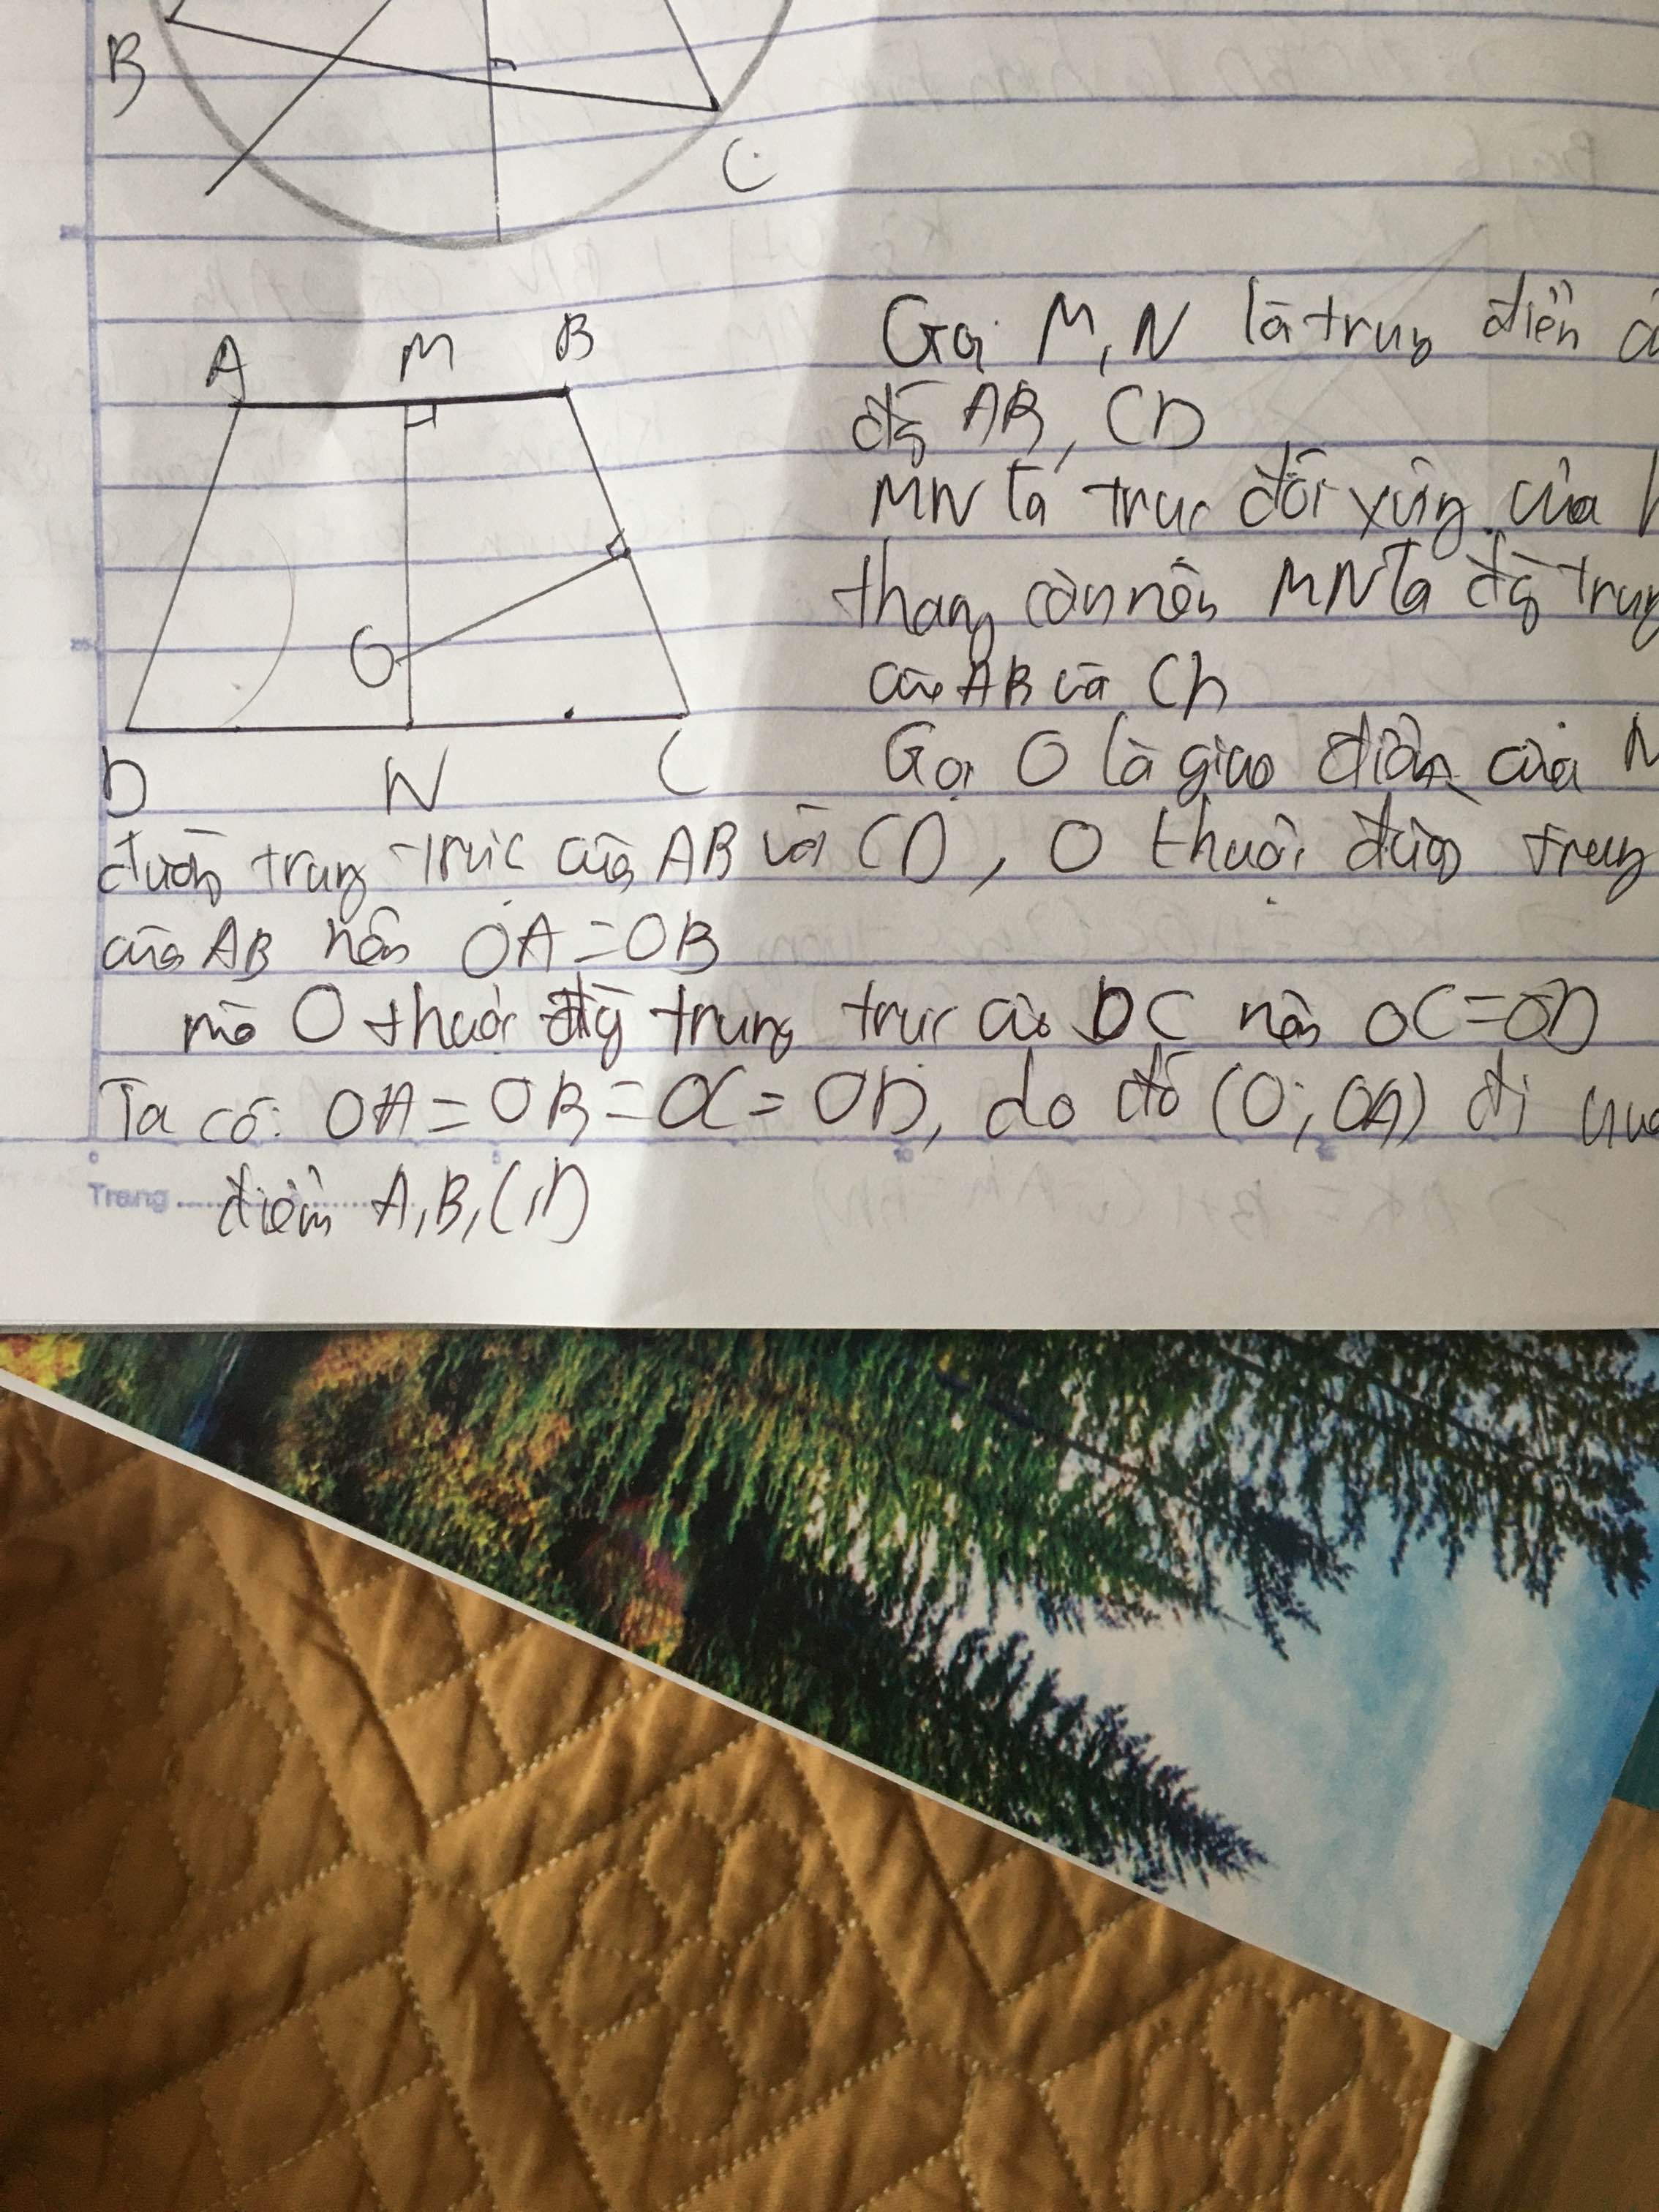 B
C
A M B
Gọi M, N là trung điểm
đg AB, CD
MN là trục đối xứng của
thang cân nên MN là đg trung
của AB và CD
O
D N C
Gọi O là giao điểm của
đường trung trực của AB với CD, O thuộc đường trung
của AB nên OA = OB
mà O thuộc đg trung trực của DC nên OC = OD
Ta có: OA = OB = OC = OD, do đó (O; OA) đi qua
0 5 10 15
Trang
điểm A, B, C, D